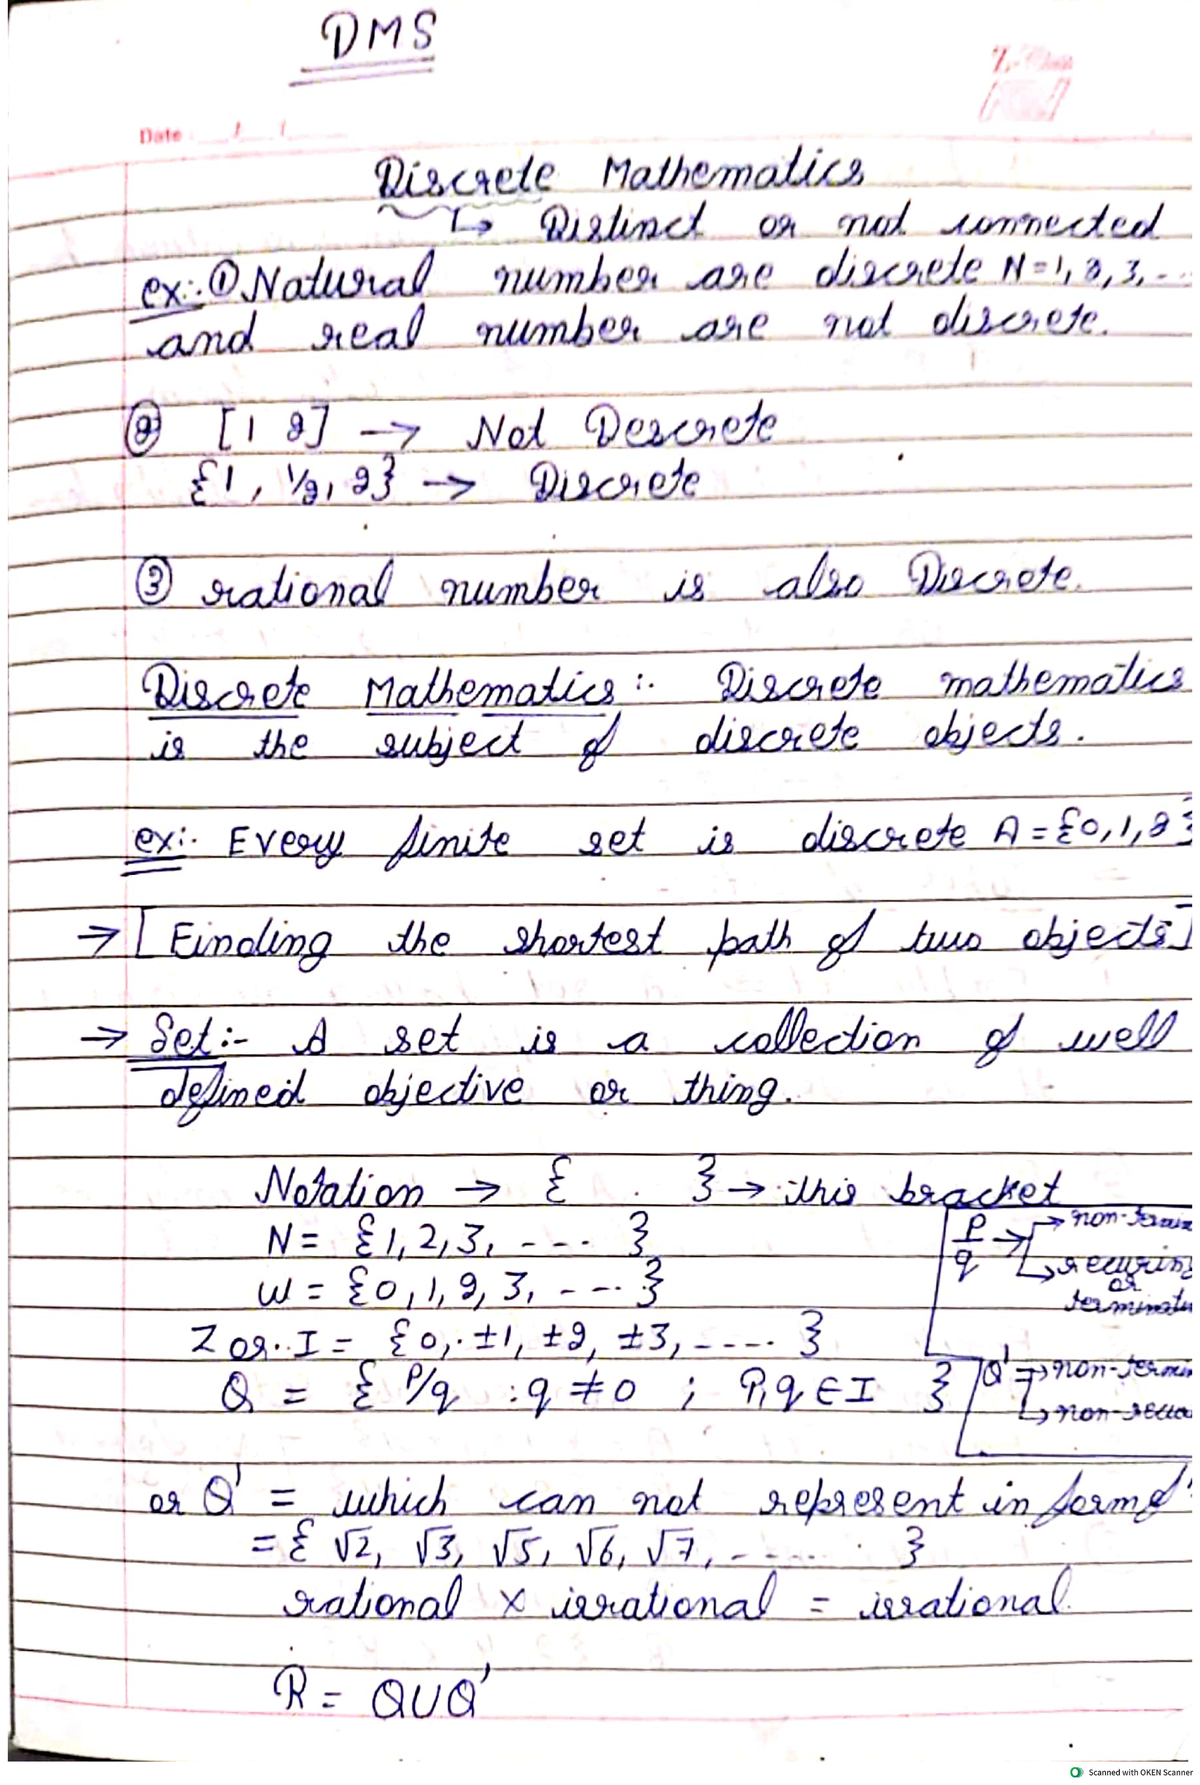 DMS
Date / /
Discrete Mathematics
↳ Distinct or not connected
ex:. ① Natural number are discrete N=1, 2, 3, -..
and real number are not discrete.
② [1 2] → Not Descrete
{1, 1/2, 2} → Discrete
③ rational number is also Discrete.
Discrete Mathematics :. Discrete mathematics
is the subject of discrete objects.
ex:. Every finite set is discrete A = {0, 1, 2}
→ [Finding the shortest path of two objects]
→ Set:- A set is a collection of well
defined objective or thing.
Notation → { } → this bracket
N = {1, 2, 3, ---- }
W = {0, 1, 2, 3, ---- }
Z or I = {0, ±1, ±2, ±3, ----- }
Q = { P/q : q ≠ 0 ; P, q ∈ I }
P/q → non-termin
↳ recuring
or
terminati
Q' → non-termin
↳ non-recu
or Q' = which can not represent in form of
= { √2, √3, √5, √6, √7, ----- }
rational × irrational = irrational
R = Q∪Q'
Scanned with OKEN Scanner